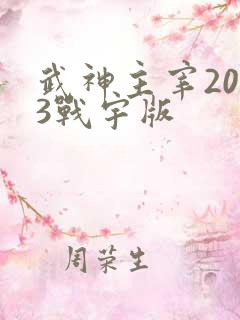 武神主宰20
3戰宇版
周荣生